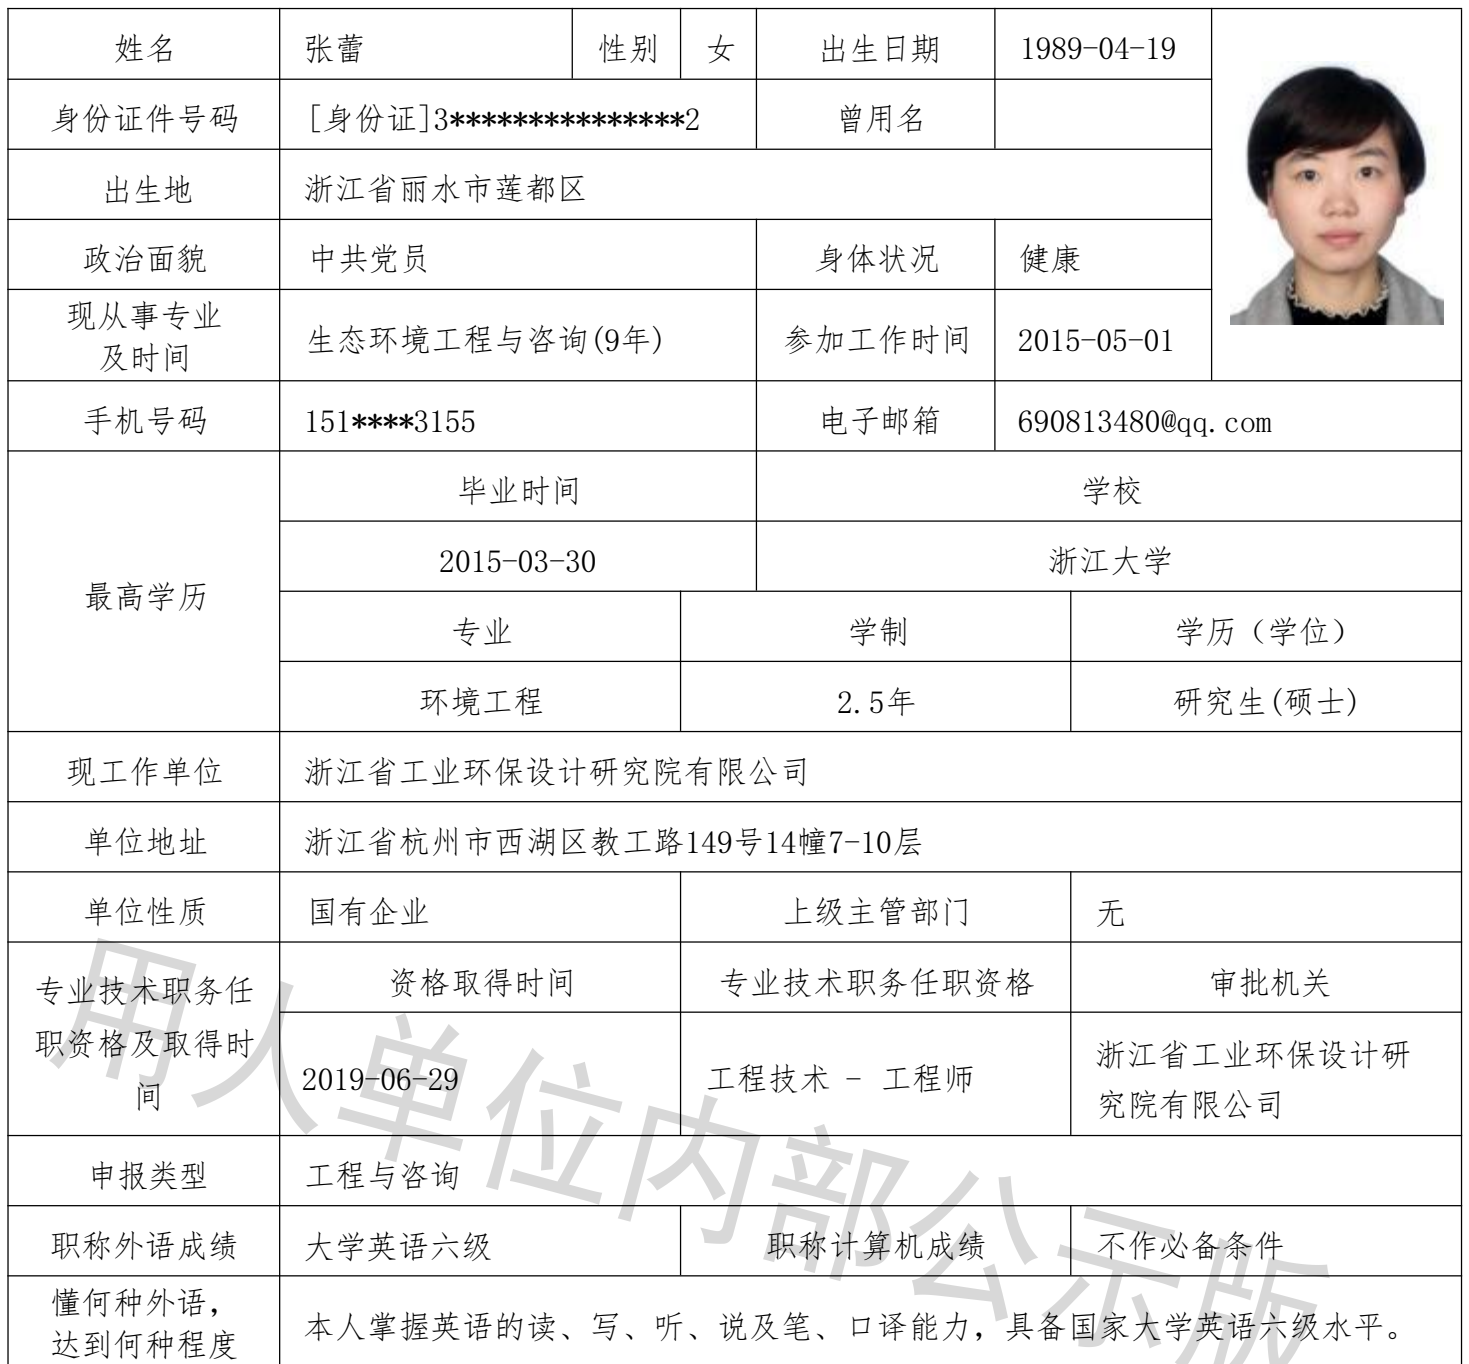 姓名 张蕾 性别 女 出生日期 1989-04-19
身份证件号码 [身份证]3***************2 曾用名
出生地 浙江省丽水市莲都区
政治面貌 中共党员 身体状况 健康
现从事专业
及时间 生态环境工程与咨询(9年) 参加工作时间 2015-05-01
手机号码 151****3155 电子邮箱 690813480@qq.com
最高学历
毕业时间 学校
2015-03-30 浙江大学
专业 学制 学历（学位）
环境工程 2.5年 研究生(硕士)
现工作单位 浙江省工业环保设计研究院有限公司
单位地址 浙江省杭州市西湖区教工路149号14幢7-10层
单位性质 国有企业 上级主管部门 无
专业技术职务任
职资格及取得时
间
资格取得时间 专业技术职务任职资格 审批机关
2019-06-29 工程技术 - 工程师 浙江省工业环保设计研
究院有限公司
申报类型 工程与咨询
职称外语成绩 大学英语六级 职称计算机成绩 不作必备条件
懂何种外语，
达到何种程度 本人掌握英语的读、写、听、说及笔、口译能力，具备国家大学英语六级水平。
用人单位内部公示版